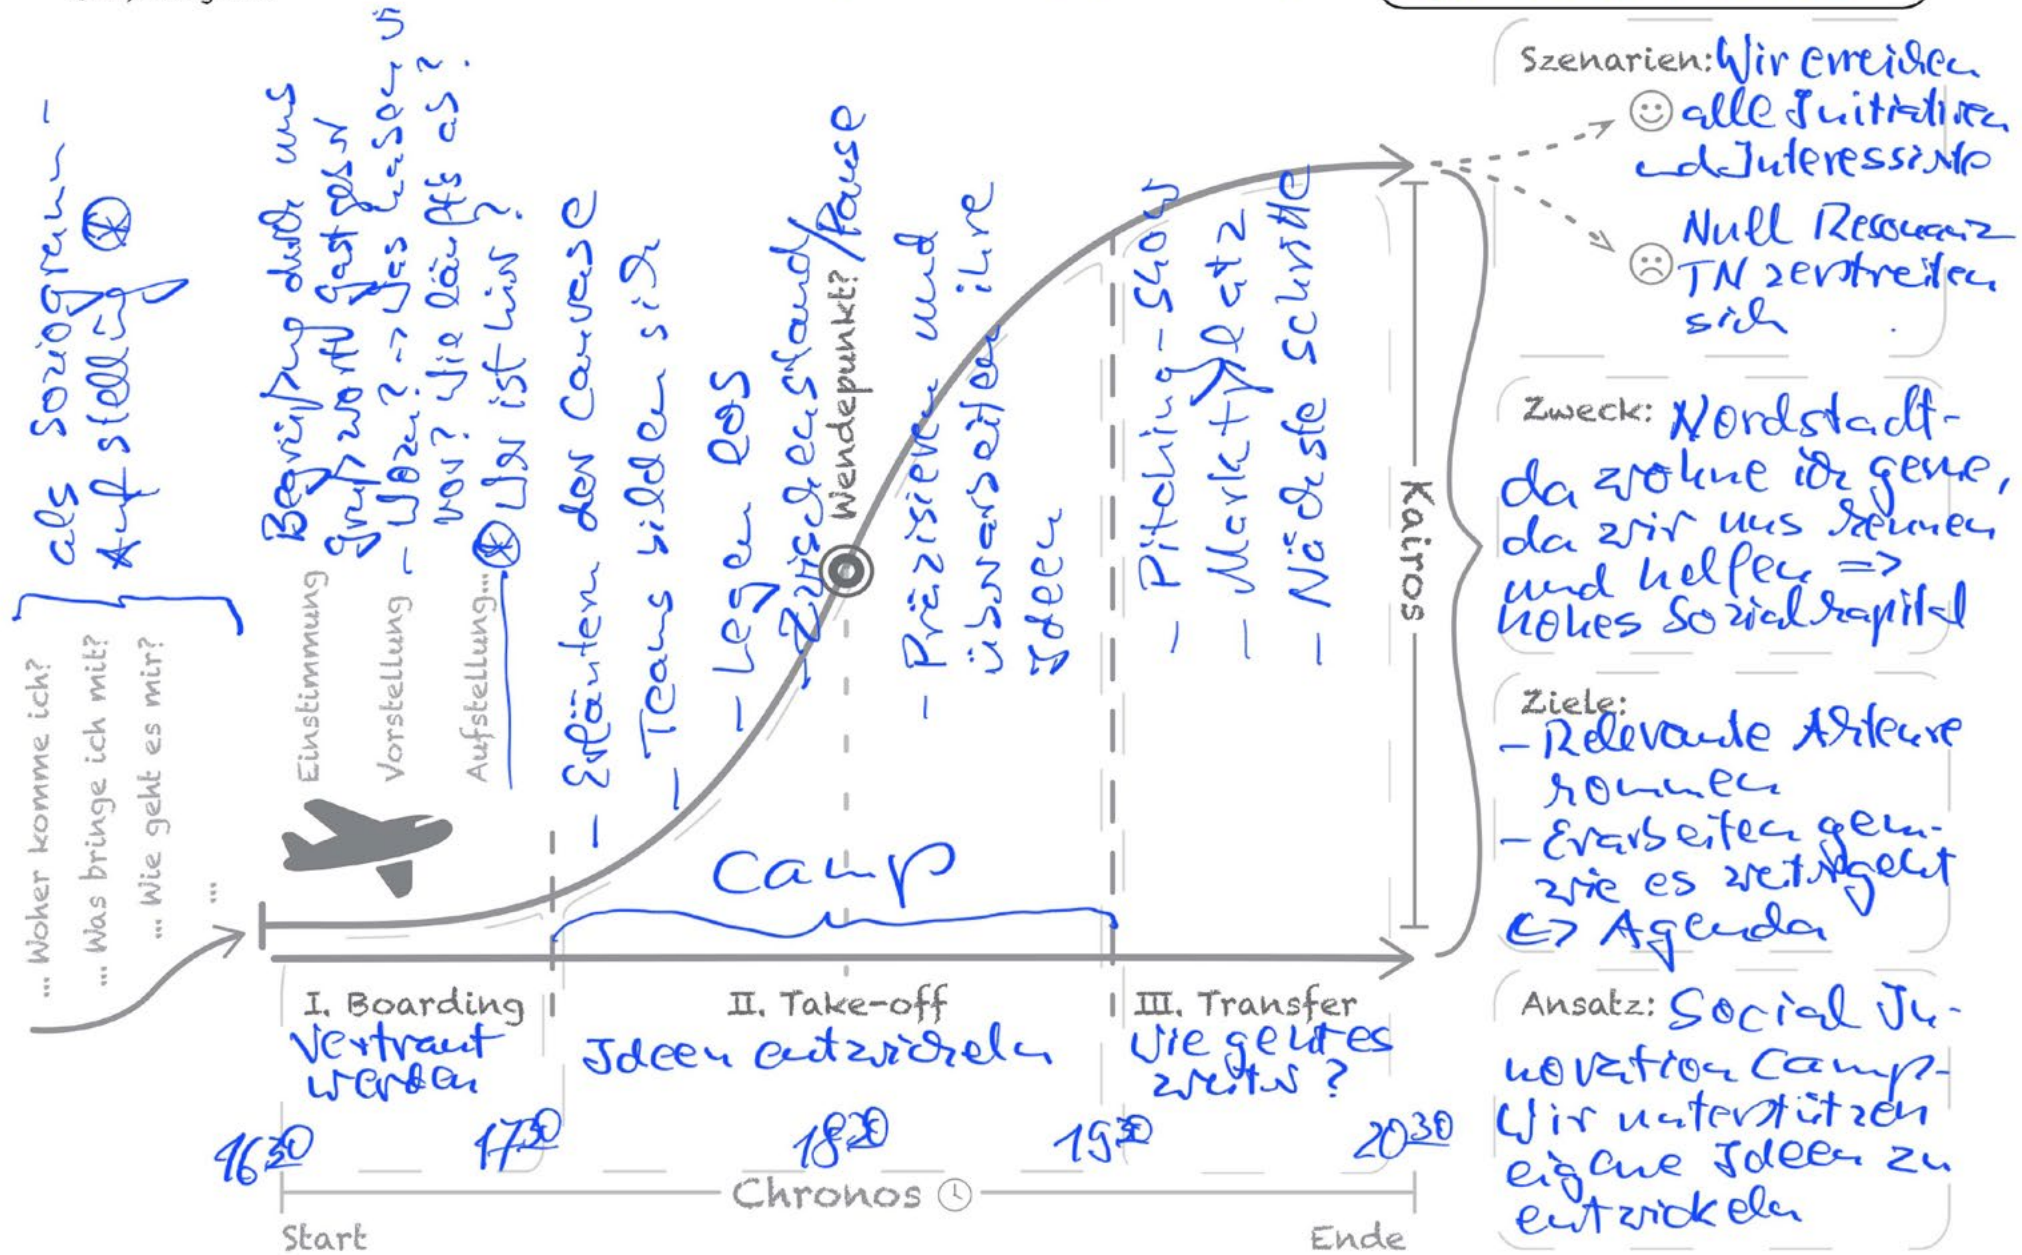 ... Woher komme ich?
... Was bringe ich mit?
... Wie geht es mir?
...
als Soziogramm -
Aufstellung
Einstimmung
Vorstellung
Aufstellung...
Begrüßung durch uns
Grußwort Gastgeber
- Wozu? -> Was haben
vor? Wie läuft es?
Wer ist hier?
- Erläutern der Canvase
- Teams bilden sich
- Legen los
- Zwischenstand/
Wendepunkt? /Pause
- Präzisieren und
überarbeiten ihre
Ideen
- Pitching-Show
- Marktplatz
- Nächste Schritte
Camp
Kairos
I. Boarding
Vertraut
werden
II. Take-off
Ideen entwickeln
III. Transfer
Wie geht es
weiter?
16 30
17 30
18 30
19 30
20 30
Chronos
Start
Ende
Szenarien: Wir erreichen
alle Initiativen
und Interessierte
Null Resonanz
TN zerstreiten
sich
Zweck: Nordstadt-
da wohne ich gerne,
da wir uns kennen
und helfen =>
hohes Sozialkapital
Ziele:
- Relevante Akteure
kommen
- Erarbeiten gem.
wie es weitergeht
<> Agenda
Ansatz: Social In-
novation Camp-
Wir unterstützen
eigene Ideen zu
entwickeln